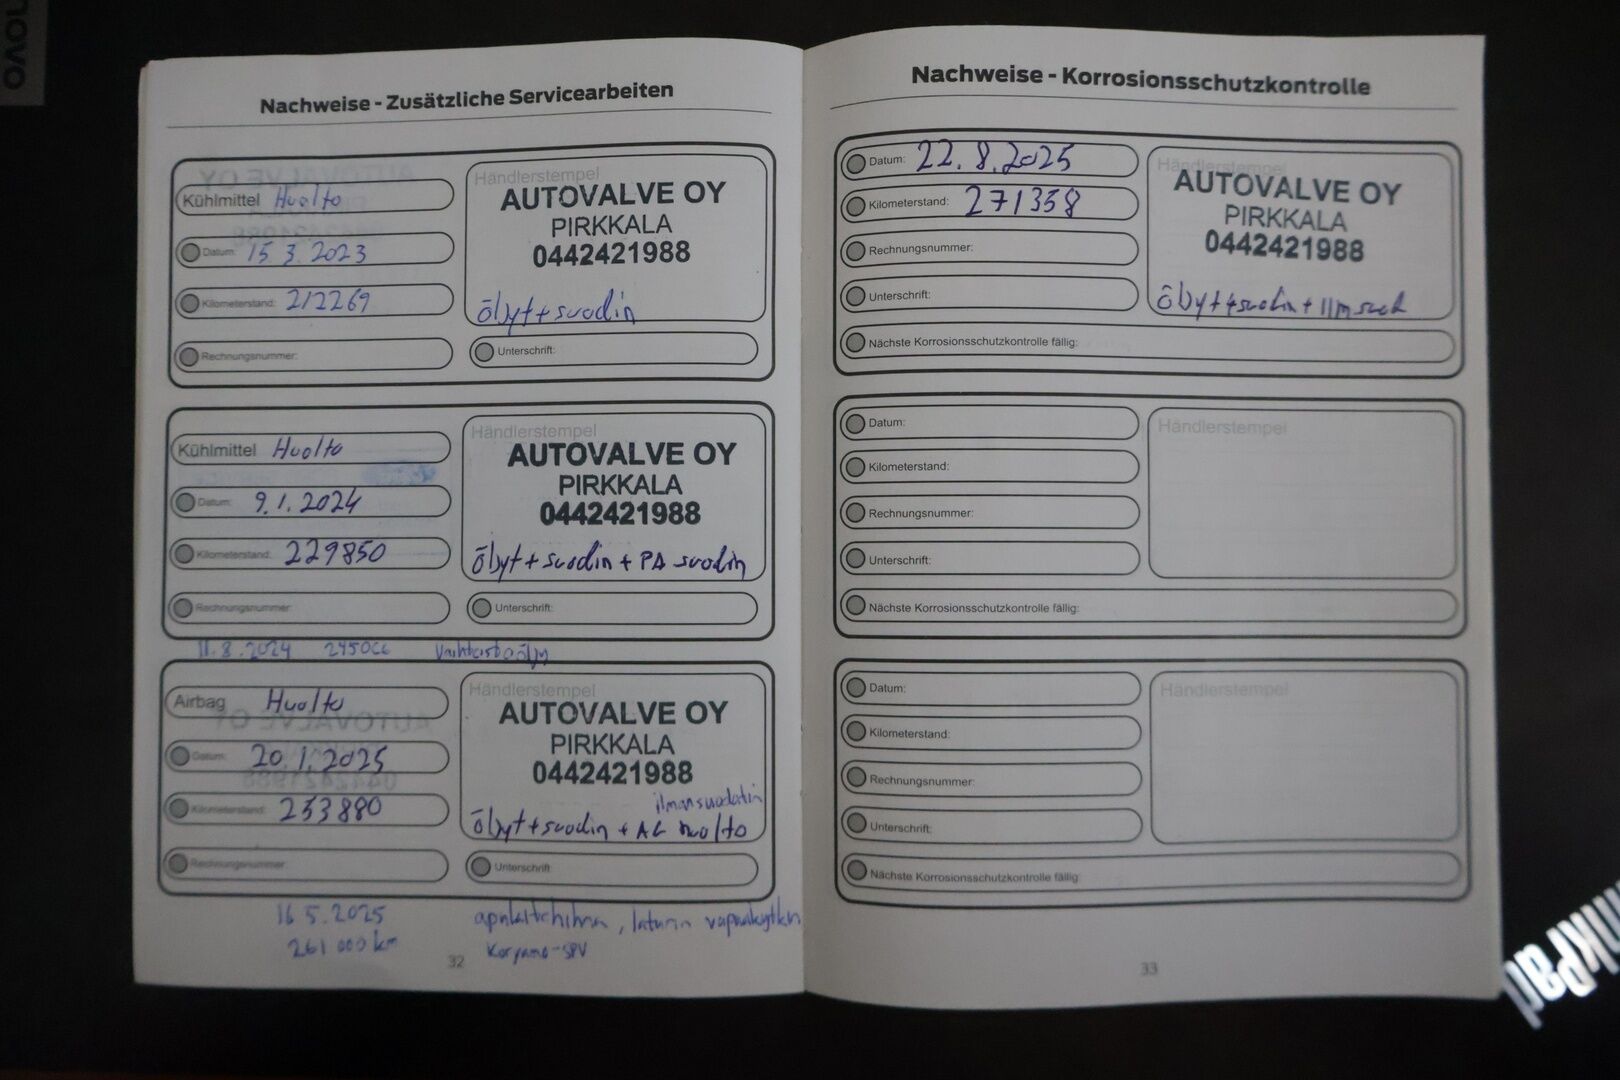 Nachweise - Zusätzliche Servicearbeiten
Kühlmittel Huolto
Datum: 15 3. 2023
Kilometerstand: 212269
Rechnungsnummer:
Händlerstempel
AUTOVALVE OY
PIRKKALA
0442421988
öljyt + suodin
Unterschrift:
Kühlmittel Huolto
Datum: 9.1.2024
Kilometerstand: 229850
Rechnungsnummer:
Händlerstempel
AUTOVALVE OY
PIRKKALA
0442421988
öljyt + suodin + PA suodin
Unterschrift:
11.8.2024
Airbag Huolto
Datum: 20.1.2025
Kilometerstand: 253880
Rechnungsnummer:
Händlerstempel
AUTOVALVE OY
PIRKKALA
0442421988
ilmansuodatin
öljyt + suodin + AC huolto
Unterschrift:
16 5.2025
261 000 km
apulaitehihna, laturin
32
Nachweise - Korrosionsschutzkontrolle
Datum: 22.8.2025
Kilometerstand: 271358
Rechnungsnummer:
Unterschrift:
Nächste Korrosionsschutzkontrolle fällig:
Händlerstempel
AUTOVALVE OY
PIRKKALA
0442421988
öljyt + suodin + Ilmsuod
Datum:
Kilometerstand:
Rechnungsnummer:
Unterschrift:
Nächste Korrosionsschutzkontrolle fällig:
Händlerstempel
Datum:
Kilometerstand:
Rechnungsnummer:
Unterschrift:
Nächste Korrosionsschutzkontrolle fällig:
Händlerstempel
33